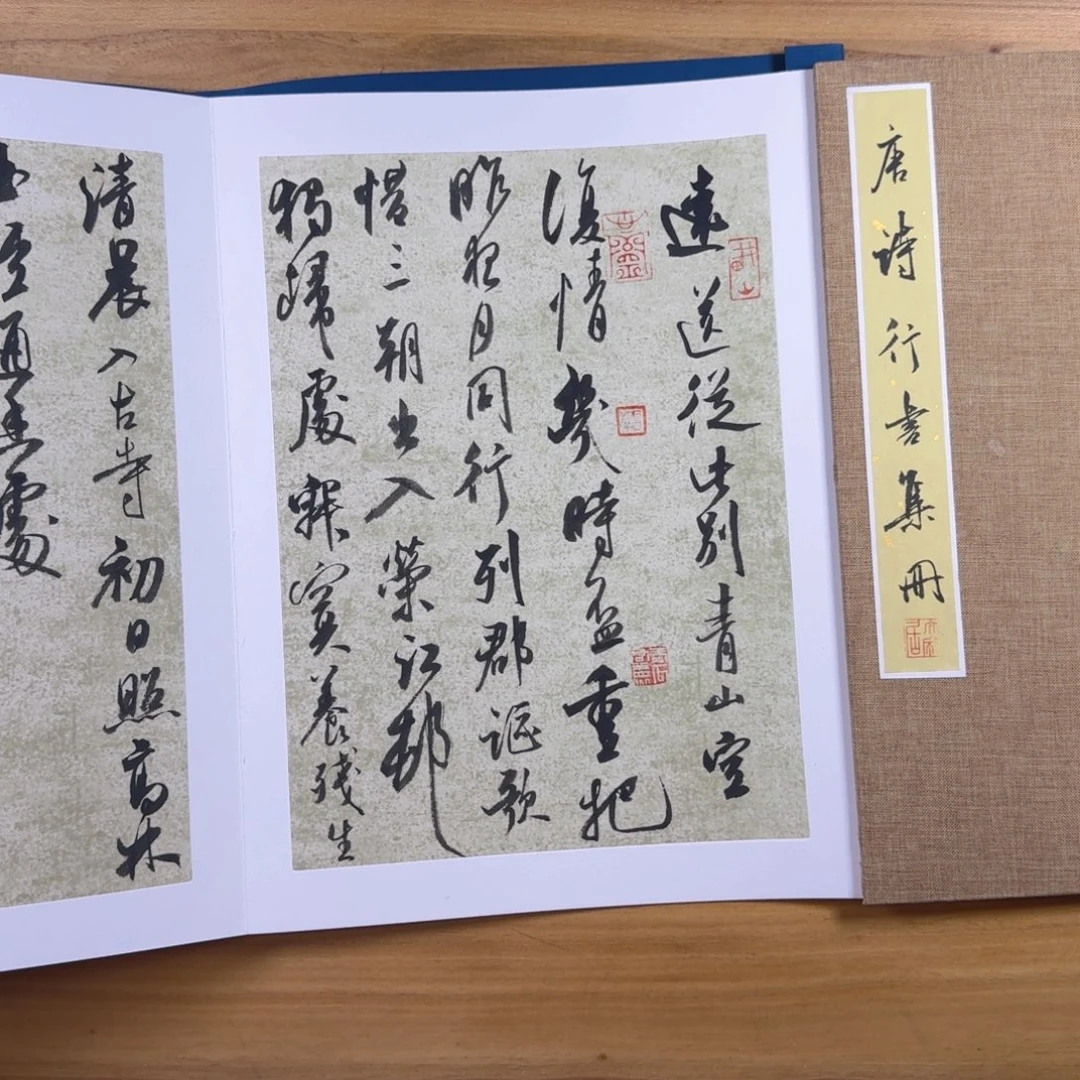 唐詩行書集冊
遠送從此別青山空
復情幾時盃重把
昨夜月同行列郡謳歌
惜三朝出入榮江邨
獨歸處寂寞養殘生
清晨入古寺初日照高林
通幽處